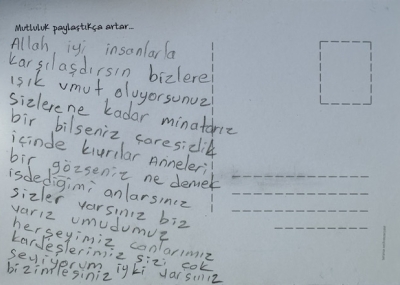 Mutluluk paylaştıkça artar...
Allah iyi insanlarla
karşılaşdırsın bizlere
ışık umut oluyorsunuz
Sizlere ne kadar minatarız
bir bilseniz çaresizlik
içinde kıvrılar Anneleri
bir gözseniz ne demek
isdediğimi anlarsınız
sizler varsınız biz
varız umudumuz
herşeyimiz canlarımız
kardeşlerimiz sizi çok
seviyorum iyki varsınız
bizimlesiniz